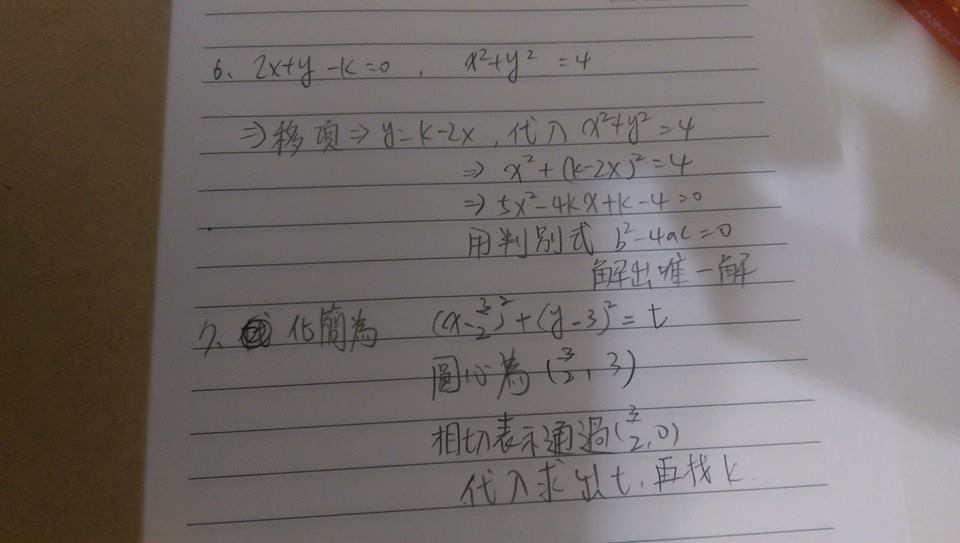 6、 2x+y-k=0 , x²+y²=4
⇒移項⇒y=k-2x,代入x²+y²=4
⇒ x²+(k-2x)²=4
⇒ 5x²-4kx+k-4=0
用判別式 b²-4ac=0
解出唯一解
7、 化簡為 (x-3/2)²+(y-3)²=t
圓心為(3/2, 3)
相切表示通過(3/2,0)
代入求出t,再找k.